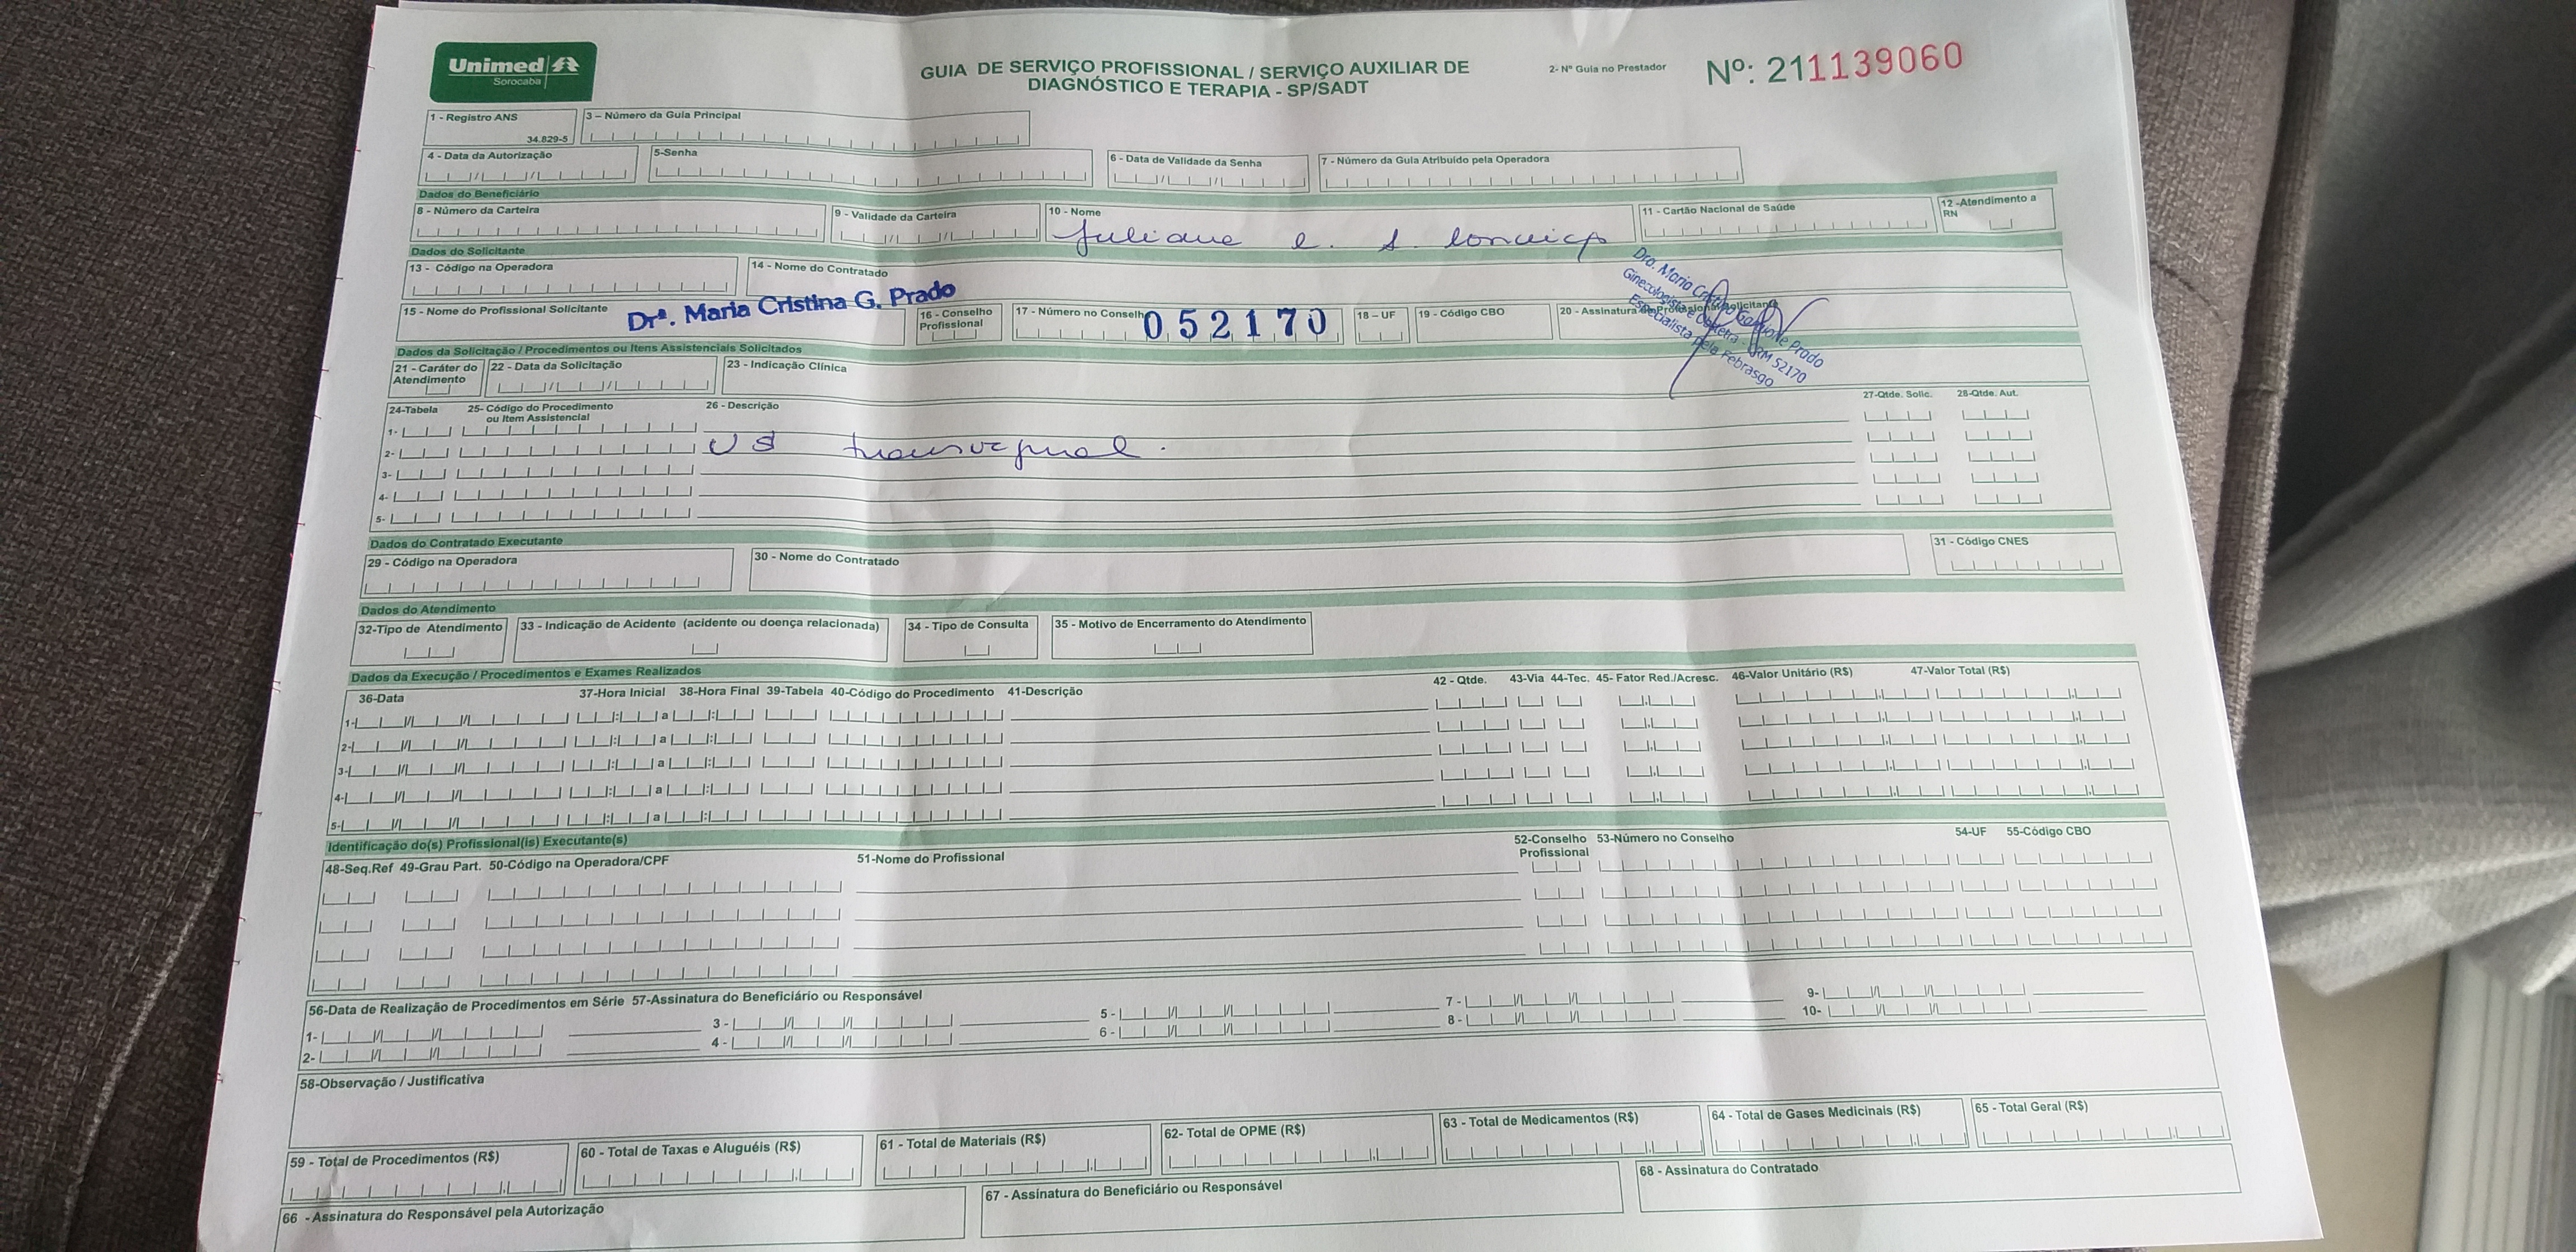 Unimed
Sorocaba
GUIA DE SERVIÇO PROFISSIONAL / SERVIÇO AUXILIAR DE
DIAGNÓSTICO E TERAPIA - SP/SADT
2- Nº Guia no Prestador
Nº: 211139060
1 - Registro ANS
34.829-5
3 – Número da Guia Principal
4 - Data da Autorização
5-Senha
6 - Data de Validade da Senha
7 - Número da Guia Atribuído pela Operadora
Dados do Beneficiário
8 - Número da Carteira
9 - Validade da Carteira
10 - Nome
Juliane C. S. Conceiçº
11 - Cartão Nacional de Saúde
12 -Atendimento a
RN
Dados do Solicitante
13 - Código na Operadora
14 - Nome do Contratado
15 - Nome do Profissional Solicitante
Drª. Maria Cristina G. Prado
16 - Conselho
Profissional
17 - Número no Conselho
052170
18 – UF
19 - Código CBO
20 - Assinatura do Profissional Solicitante
Dra. Maria Cristina Prado
Ginecologista e Obstetra - CRM 52170
Especialista pela Febrasgo
Dados da Solicitação / Procedimentos ou Itens Assistenciais Solicitados
21 - Caráter do
Atendimento
22 - Data da Solicitação
23 - Indicação Clínica
24-Tabela
25- Código do Procedimento
ou Item Assistencial
26 - Descrição
27-Qtde. Solic.
28-Qtde. Aut.
1-
2-
US transvaginal.
3-
4-
5-
Dados do Contratado Executante
29 - Código na Operadora
30 - Nome do Contratado
31 - Código CNES
Dados do Atendimento
32-Tipo de Atendimento
33 - Indicação de Acidente (acidente ou doença relacionada)
34 - Tipo de Consulta
35 - Motivo de Encerramento do Atendimento
Dados da Execução / Procedimentos e Exames Realizados
36-Data 37-Hora Inicial 38-Hora Final 39-Tabela 40-Código do Procedimento 41-Descrição 42 - Qtde. 43-Via 44-Tec. 45- Fator Red./Acresc. 46-Valor Unitário (R$) 47-Valor Total (R$)
1- a
2- a
3- a
4- a
5- a
Identificação do(s) Profissional(is) Executante(s)
48-Seq.Ref 49-Grau Part. 50-Código na Operadora/CPF 51-Nome do Profissional
52-Conselho
Profissional
53-Número no Conselho
54-UF
55-Código CBO
56-Data de Realização de Procedimentos em Série 57-Assinatura do Beneficiário ou Responsável
1- 3 - 5 - 7 - 9-
2- 4 - 6 - 8 - 10-
58-Observação / Justificativa
59 - Total de Procedimentos (R$)
60 - Total de Taxas e Aluguéis (R$)
61 - Total de Materiais (R$)
62- Total de OPME (R$)
63 - Total de Medicamentos (R$)
64 - Total de Gases Medicinais (R$)
65 - Total Geral (R$)
66 - Assinatura do Responsável pela Autorização
67 - Assinatura do Beneficiário ou Responsável
68 - Assinatura do Contratado